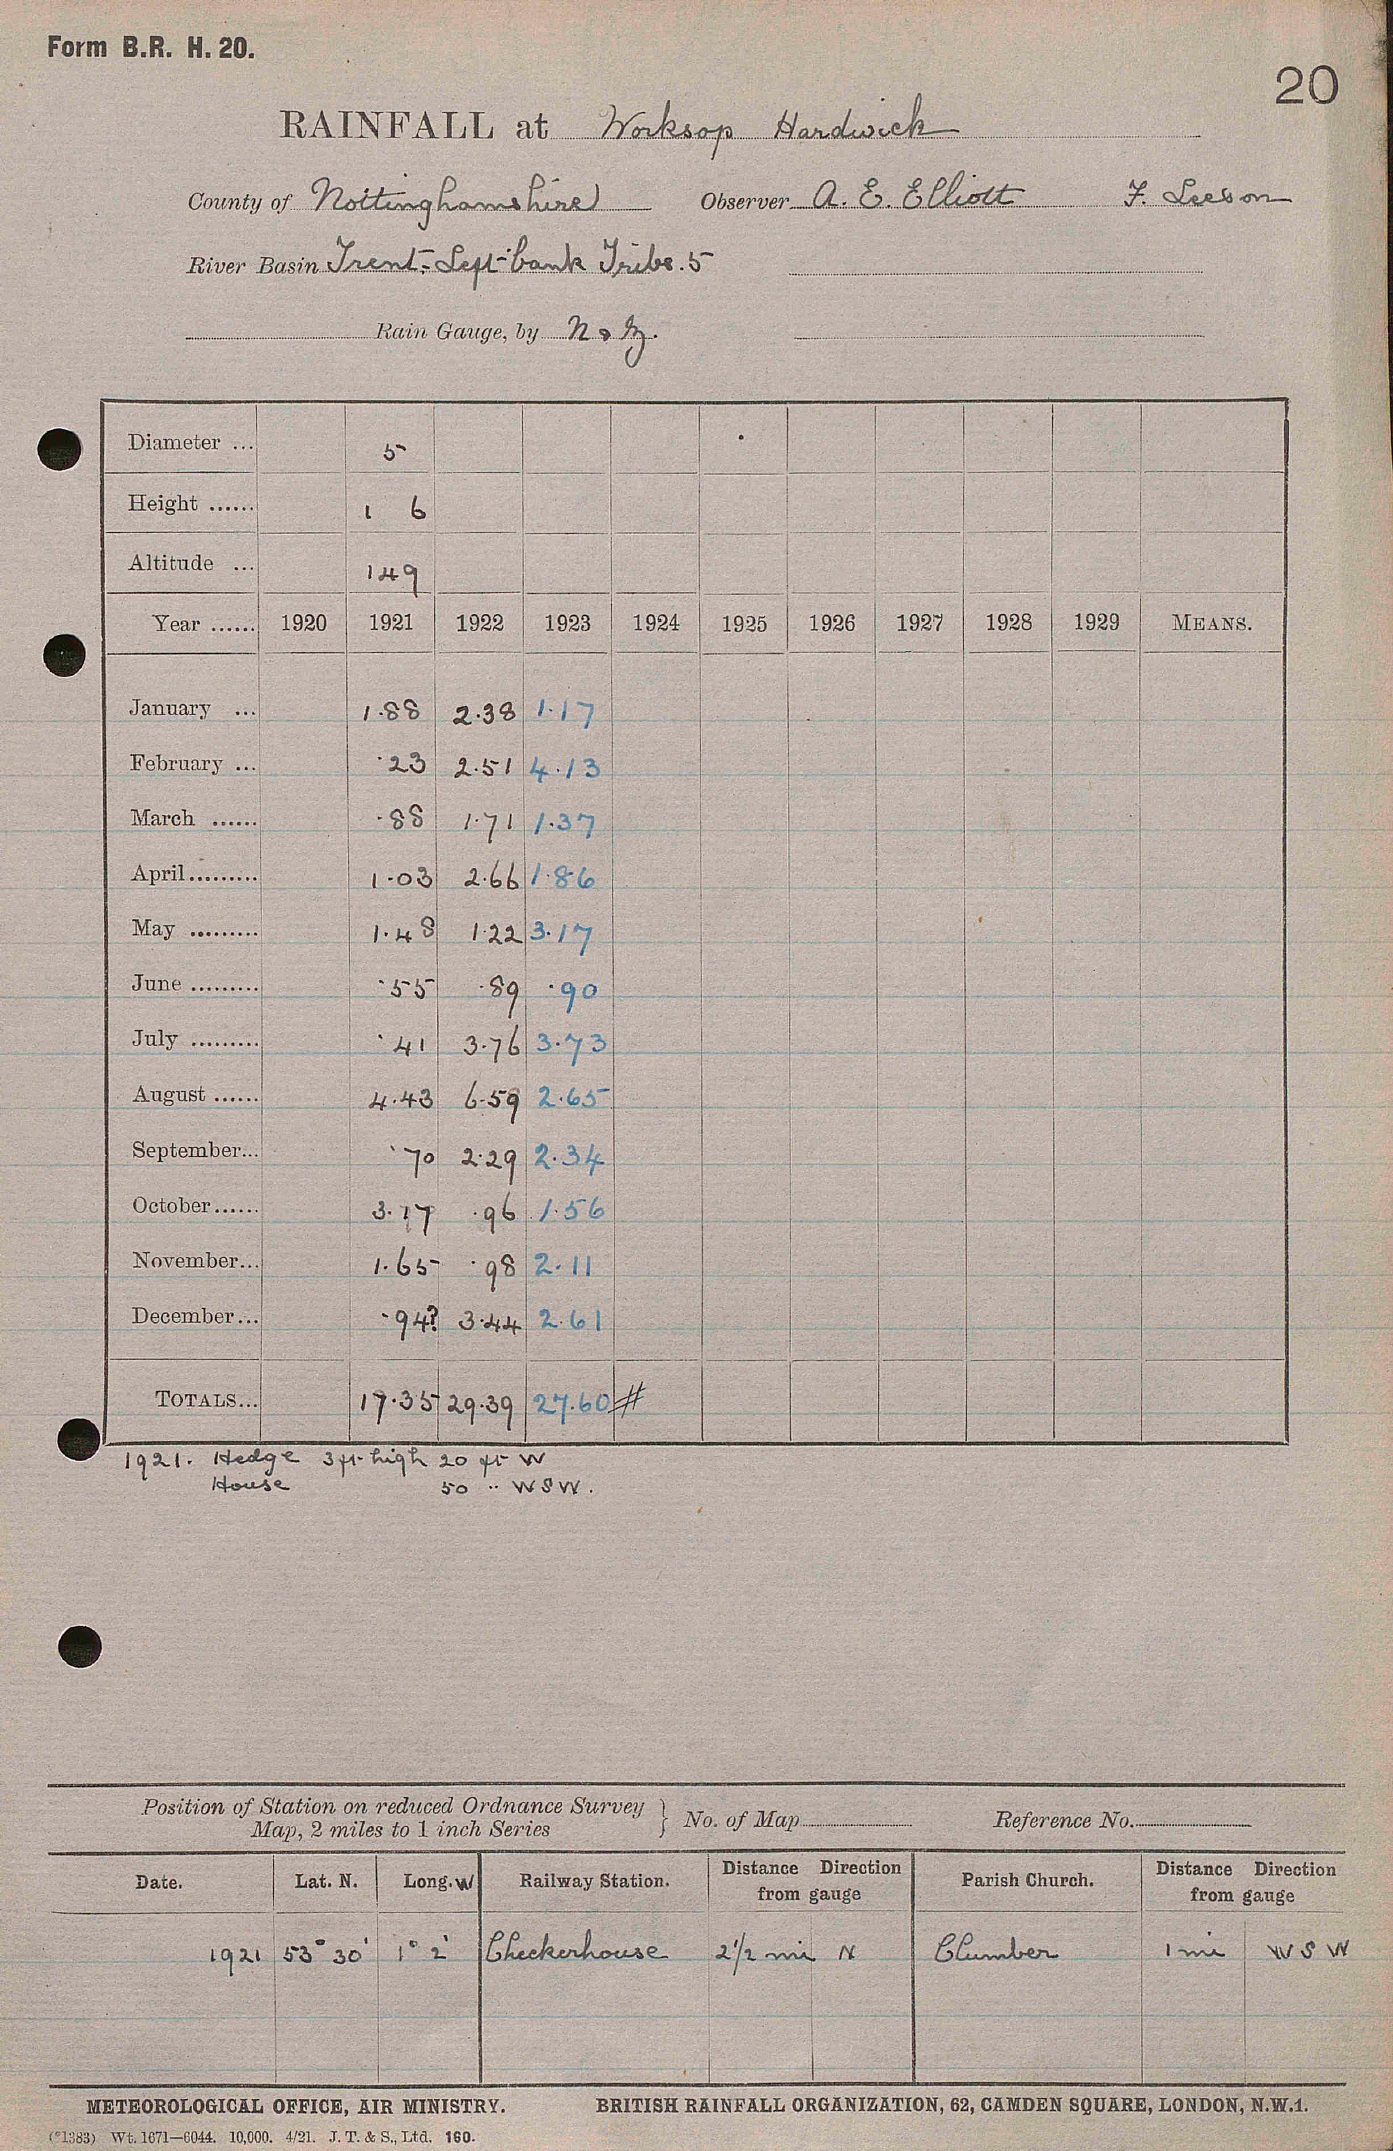 Form B.R. H. 20.
20
RAINFALL at Worksop Hardwick
County of Nottinghamshire Observer A. E. Elliott F. Leeson
River Basin Trent-Left-bank Tribs. 5
Rain Gauge, by N & Z.
Diameter ... 5
Height ...... 1 6
Altitude ... 149
Year ...... 1920 1921 1922 1923 1924 1925 1926 1927 1928 1929 MEANS.
January ... 1.88 2.38 1.17
February ... .23 2.51 4.13
March ...... .88 1.71 1.37
April......... 1.03 2.66 1.86
May ......... 1.48 1.22 3.17
June ......... .55 .89 .90
July ......... .41 3.76 3.73
August ...... 4.43 6.59 2.65
September... .70 2.29 2.34
October...... 3.17 .96 1.56
November... 1.65 .98 2.11
December... .94? 3.44 2.61
TOTALS... 17.35 29.39 27.60 #
1921. Hedge 3 ft high 20 ft W
House 50 " WSW.
Position of Station on reduced Ordnance Survey
Map, 2 miles to 1 inch Series } No. of Map Reference No.
Date. Lat. N. Long. W Railway Station. Distance Direction from gauge Parish Church. Distance Direction from gauge
1921 53° 30' 1° 2' Checkerhouse 2½ mi N Clumber 1 mi WSW
METEOROLOGICAL OFFICE, AIR MINISTRY. BRITISH RAINFALL ORGANIZATION, 62, CAMDEN SQUARE, LONDON, N.W.1.
(*1383) Wt. 1671—6044. 10,000. 4/21. J. T. & S., Ltd. 160.